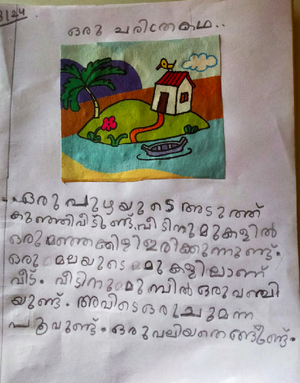 3/24
ഒരു ചരിത്രകഥ..
ഒരു പുഴയുടെ അടുത്ത്
കുഞ്ഞിവീടുണ്ട്. വീടിനുമുകളിൽ
ഒരു മഞ്ഞക്കിളി ഇരിക്കുന്നുണ്ട്.
ഒരു മലയുടെ മുകളിലാണ്
വീട്. വീടിനു മുമ്പിൽ ഒരു വഞ്ചി
യുണ്ട്. അവിടെ ഒരു ചുമന്ന
പൂവുണ്ട്. ഒരു വലിയതെങ്ങുണ്ട്.